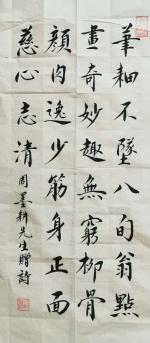 筆耕不墜八旬翁點
畫奇妙趣無窮柳骨
顏肉逸少筋身正面
慈心志清 周墨耕先生贈詩